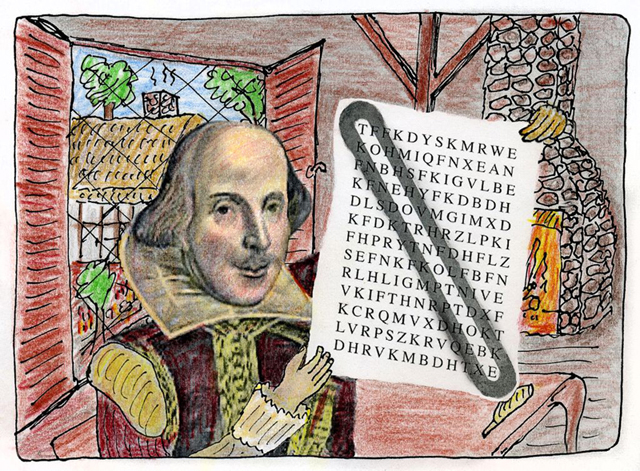 TFFKDYSKMRWE
KOHMIQFNXEAN
FNBHSFKIGVLBE
KFNEHYFKDBDH
DLSDOVMGIMXD
KFDKTRHRZLPKI
FHPRYTNFDHFLZ
SEFNKFKOLFBFN
RLHLIGMPTNIVE
VKIFTHNRPTDXF
KCRQMVXDHOKT
LVRPSZKRVQEBK
DHRVKMBDHTXE